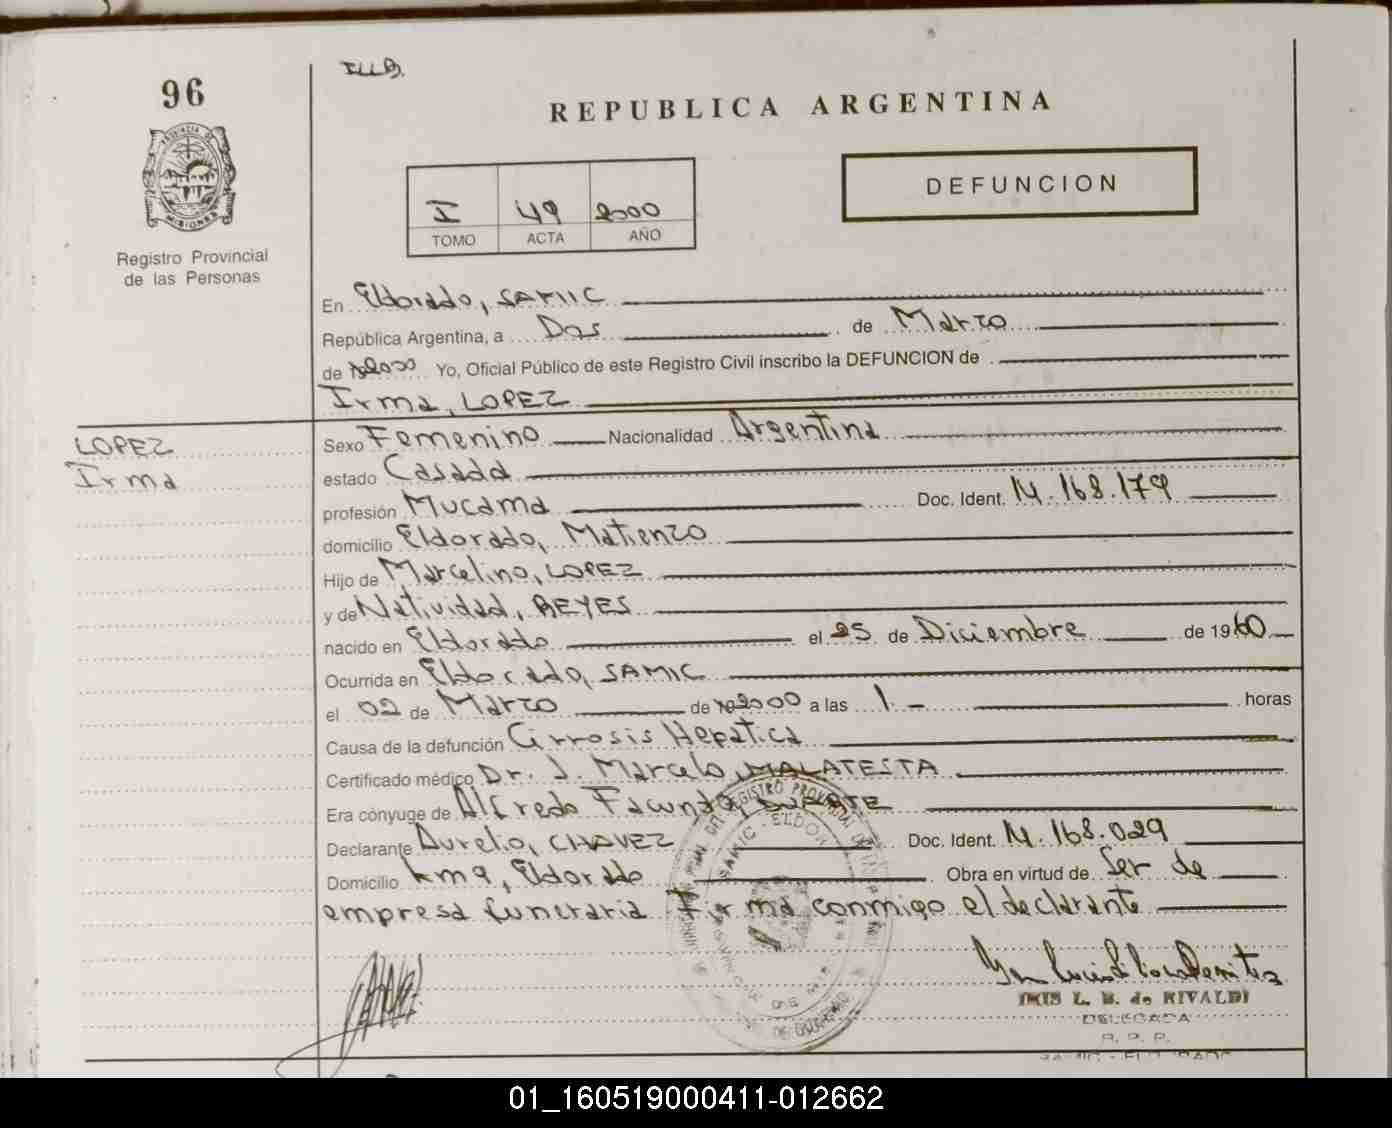 96
REPUBLICA ARGENTINA
PROVINCIA DE MISIONES
Registro Provincial
de las Personas
DEFUNCION
I 49 2000
TOMO ACTA AÑO
En Eldorado, SAMIC
República Argentina, a Dos de Marzo
de 2000 Yo, Oficial Público de este Registro Civil inscribo la DEFUNCION de
Irma, LOPEZ
LOPEZ
Irma
Sexo Femenino Nacionalidad Argentina
estado Casada
profesión Mucama Doc. Ident. 14.168.179
domicilio Eldorado, Matienzo
Hijo de Marcelino, LOPEZ
y de Natividad, REYES
nacido en Eldorado el 25 de Diciembre de 1960
Ocurrida en Eldorado, SAMIC
el 02 de Marzo de 2000 a las 1.- horas
Causa de la defunción Cirrosis Hepatica
Certificado médico Dr. J. Marcelo, MALATESTA
Era cónyuge de Alfredo Facundo, DUARTE
Declarante Aurelio, CHAVEZ Doc. Ident. 14.168.029
Domicilio km 9, Eldorado Obra en virtud de Ser de
empresa funeraria. Firma conmigo el declarante
IRIS L. B. de RIVALDI
DELEGADA
R. P. P.
SAMIC - ELDORADO
01_160519000411-012662